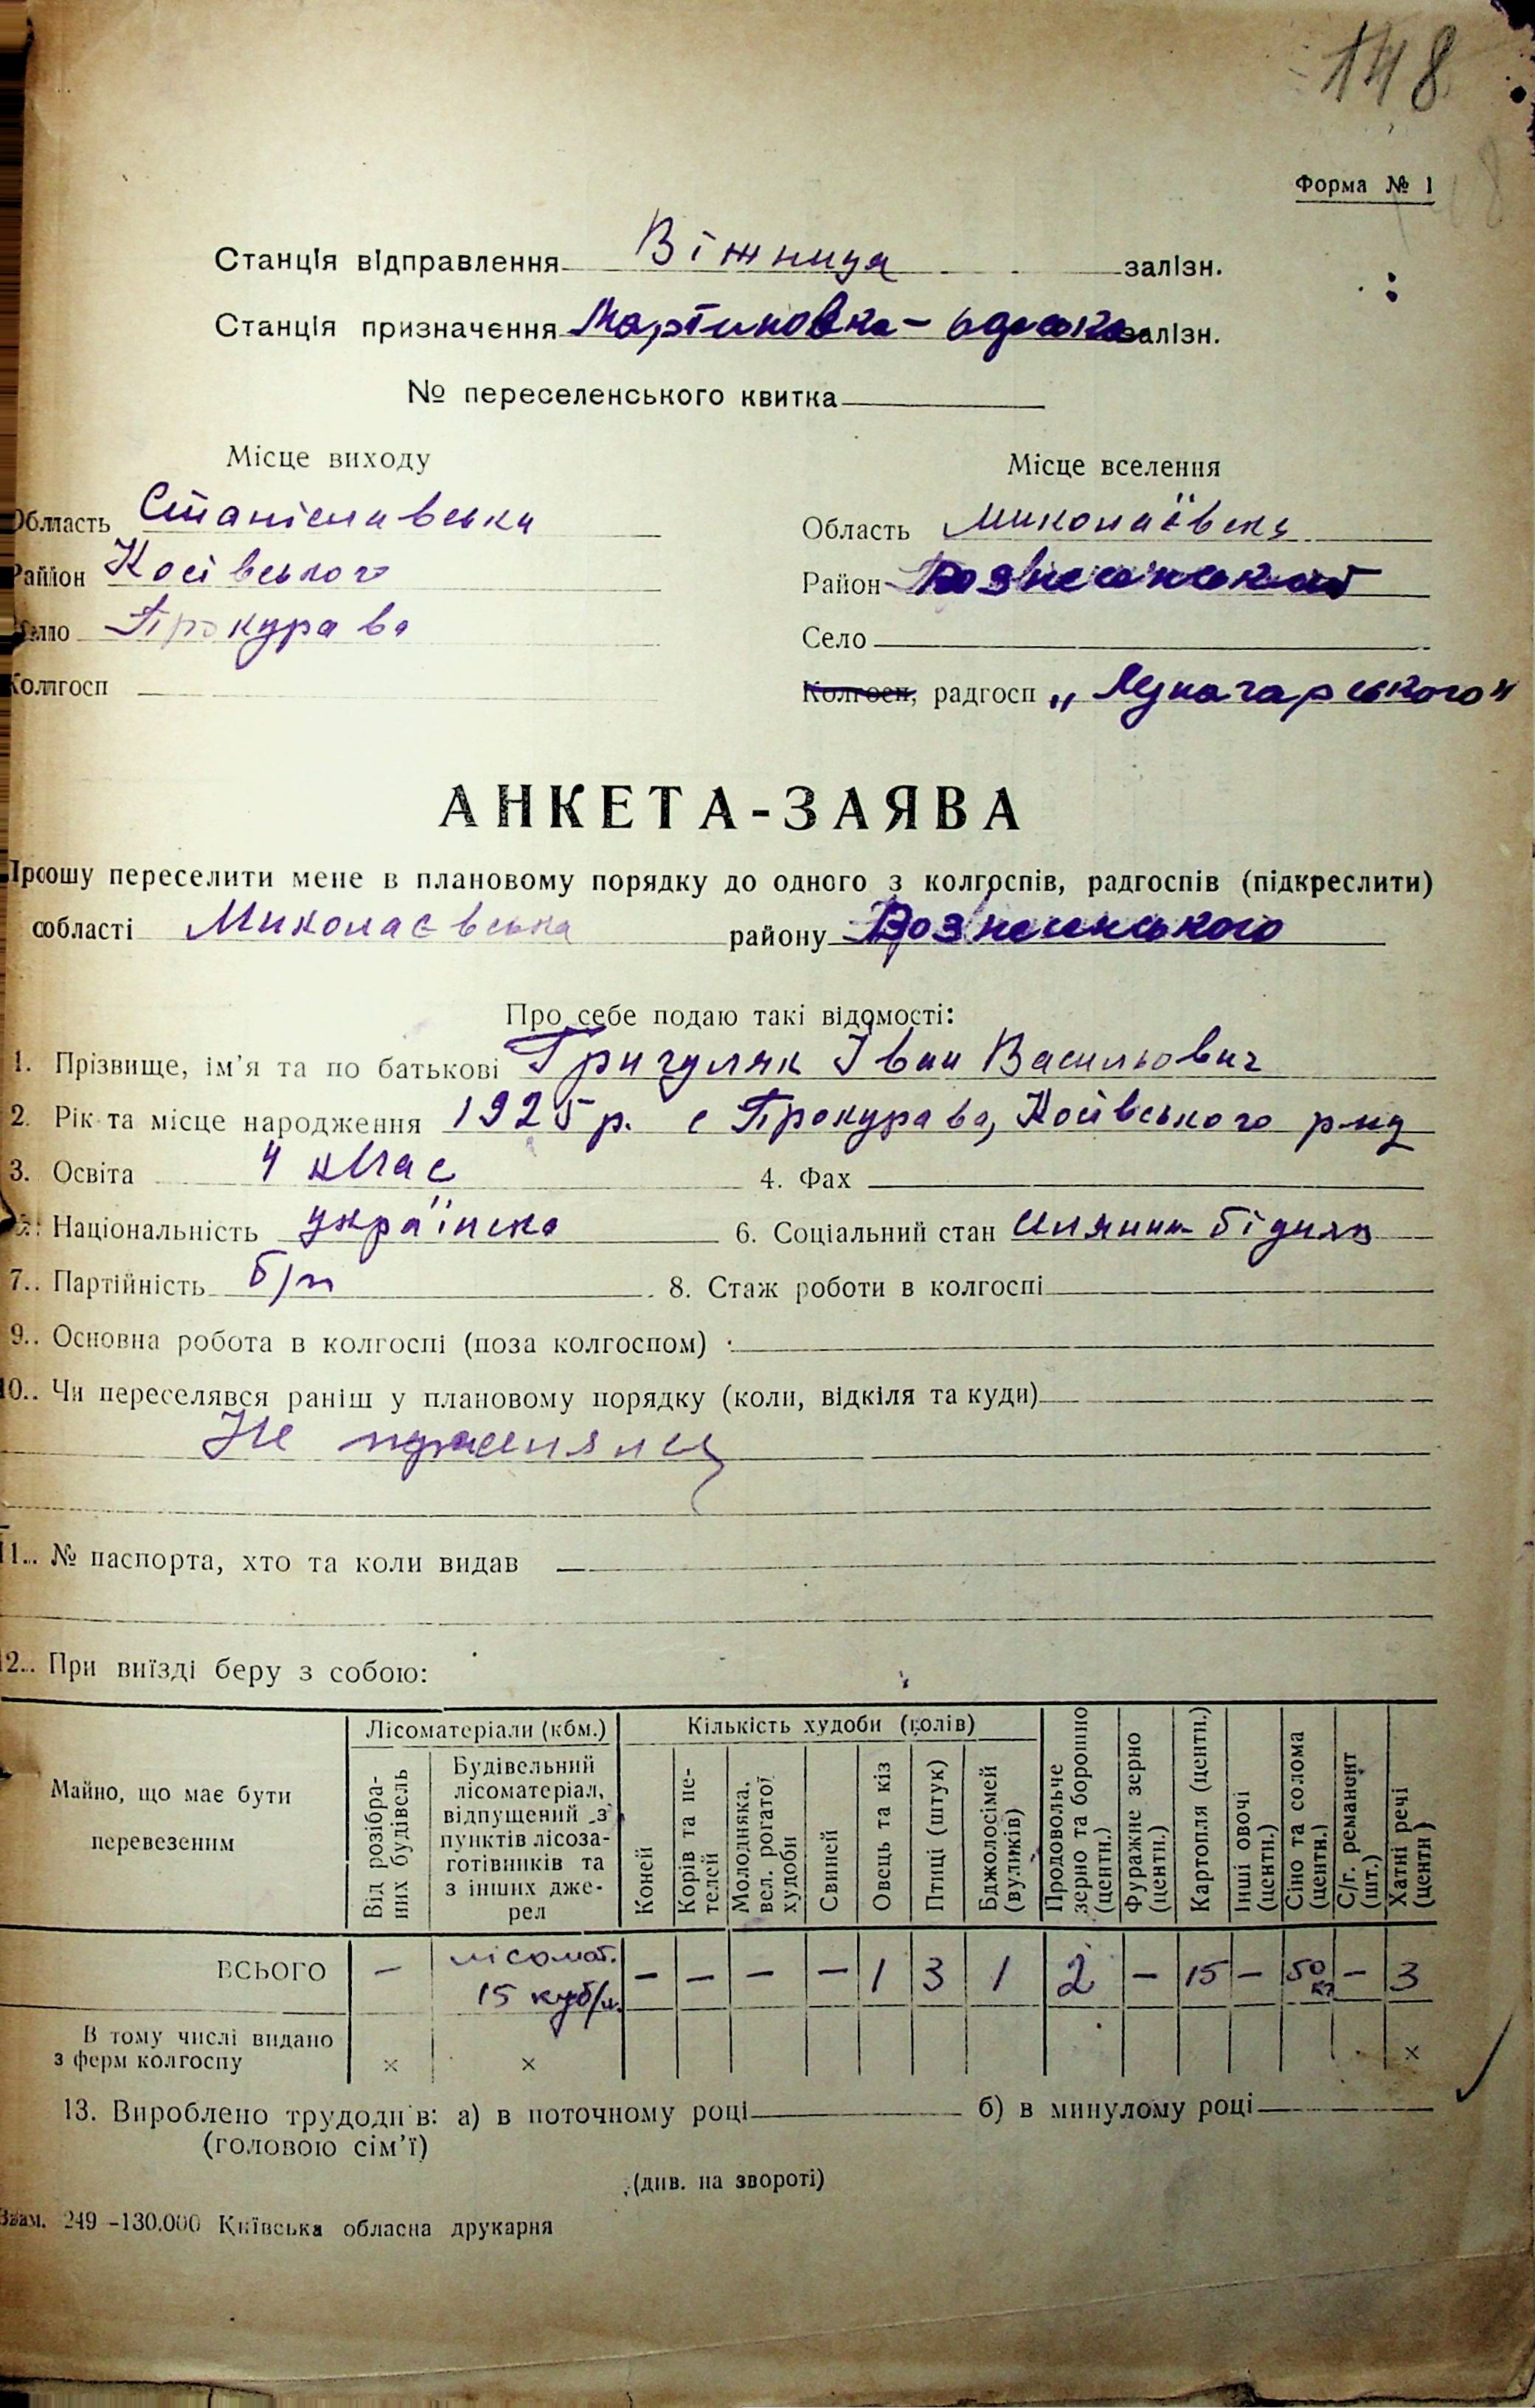 148
Форма № 1
Станція відправлення Віжниця залізн.
Станція призначення Мартиновка - Одеська залізн.
№ переселенського квитка
Місце виходу
Місце вселення
Область Станіславська
Область Миколаївська
Район Косівського
Район Вознесенський
Село Прокурава
Село
Колгосп
Колгосп, радгосп „Луначарського"
АНКЕТА-ЗАЯВА
Прошу переселити мене в плановому порядку до одного з колгоспів, радгоспів (підкреслити)
області Миколаєвська району Вознесенського
Про себе подаю такі відомості:
1. Прізвище, ім'я та по батькові Григуляк Іван Васильович
2. Рік та місце народження 1925 р. с Прокурава, Косівського р-ну
3. Освіта 4 клас 4. Фах
5. Національність українка 6. Соціальний стан селянин бідняк
7. Партійність б/п 8. Стаж роботи в колгоспі
9. Основна робота в колгоспі (поза колгоспом)
10. Чи переселявся раніш у плановому порядку (коли, відкіля та куди)
Не
11. № паспорта, хто та коли видав —
12. При виїзді беру з собою:
Майно, що має бути перевезеним
Лісоматеріали (кбм.)
Від розібраних будівель
Будівельний лісоматеріал, відпущений з пунктів лісозаготівників та з інших джерел
Кількість худоби (голів)
Коней
Корів та нетелей
Молодняка, вел. рогатої худоби
Свиней
Овець та кіз
Птиці (штук)
Бджолосімей (вуликів)
Продовольче зерно та борошно (центн.)
Фуражне зерно (центн.)
Картопля (центн.)
Інші овочі (центн.)
Сіно та солома (центн.)
С/г. реманент (шт.)
Хатні речі (центн)
ВСЬОГО — лісомат. 15 куб/м. — — — — 1 3 1 2 — 15 — 50 кг — 3
В тому числі видано з ферм колгоспу × × ×
13. Вироблено трудоднів: а) в поточному році б) в минулому році
(головою сім'ї)
(див. на звороті)
Зам. 249 -130.000 Київська обласна друкарня